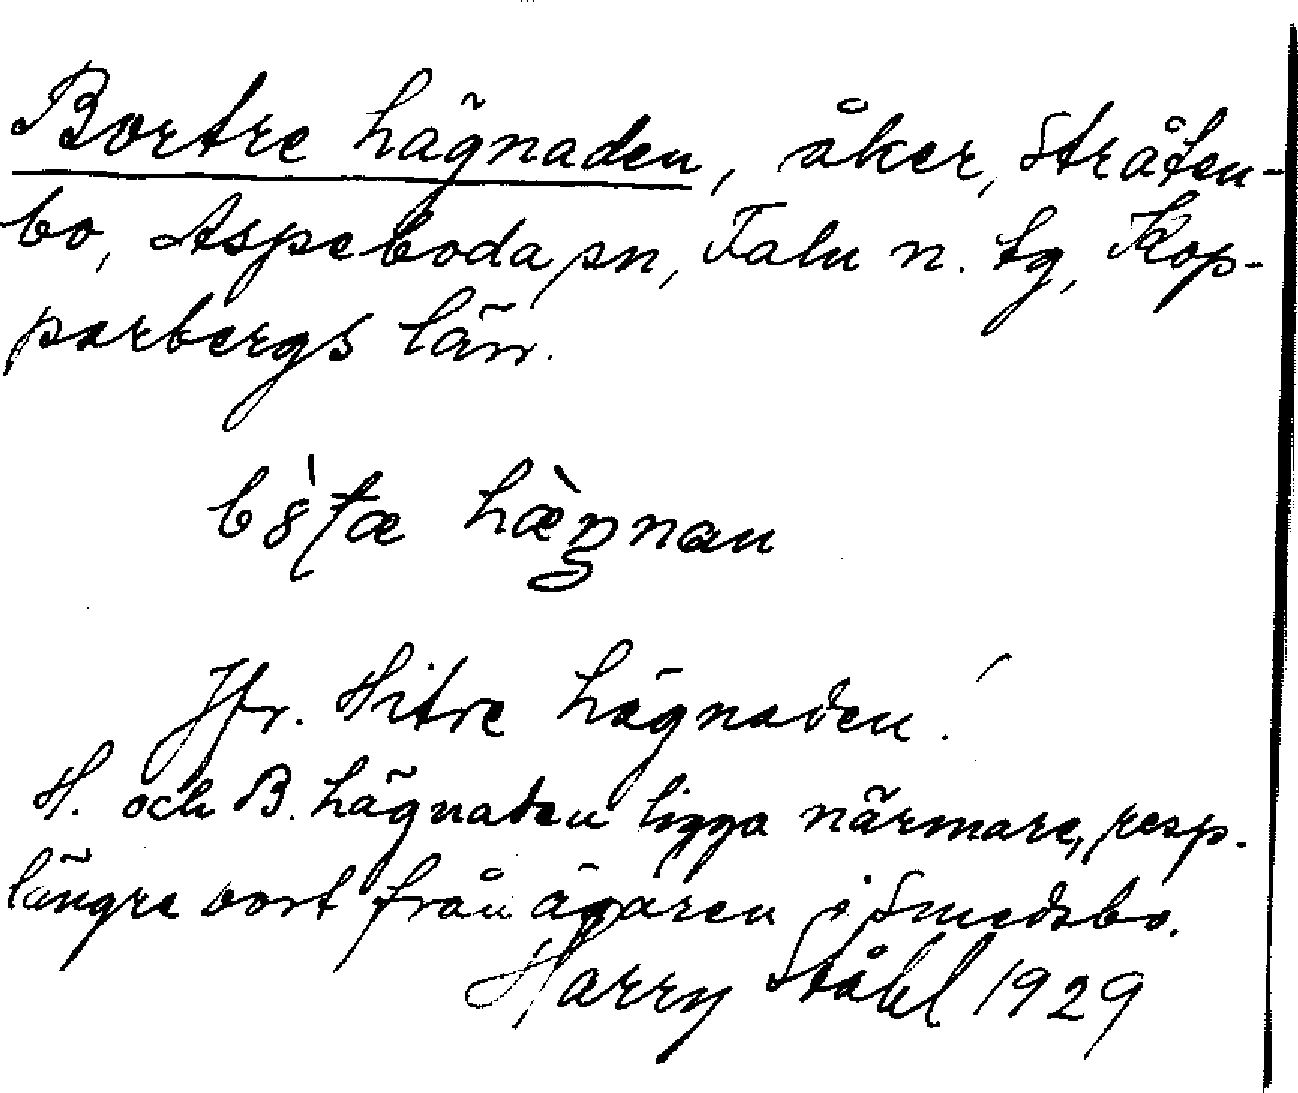 Bortre hägnaden, åker, Stråten-
bo, Aspeboda sn, Falu n. tg, Kop-
parbergs län.
hæ̀gnan
Jfr. Hitre hägnaden!
H. och B. hägnaden ligga närmare, resp.
längre bort från ägaren i Smedsbo.
Harry Ståhl 1929